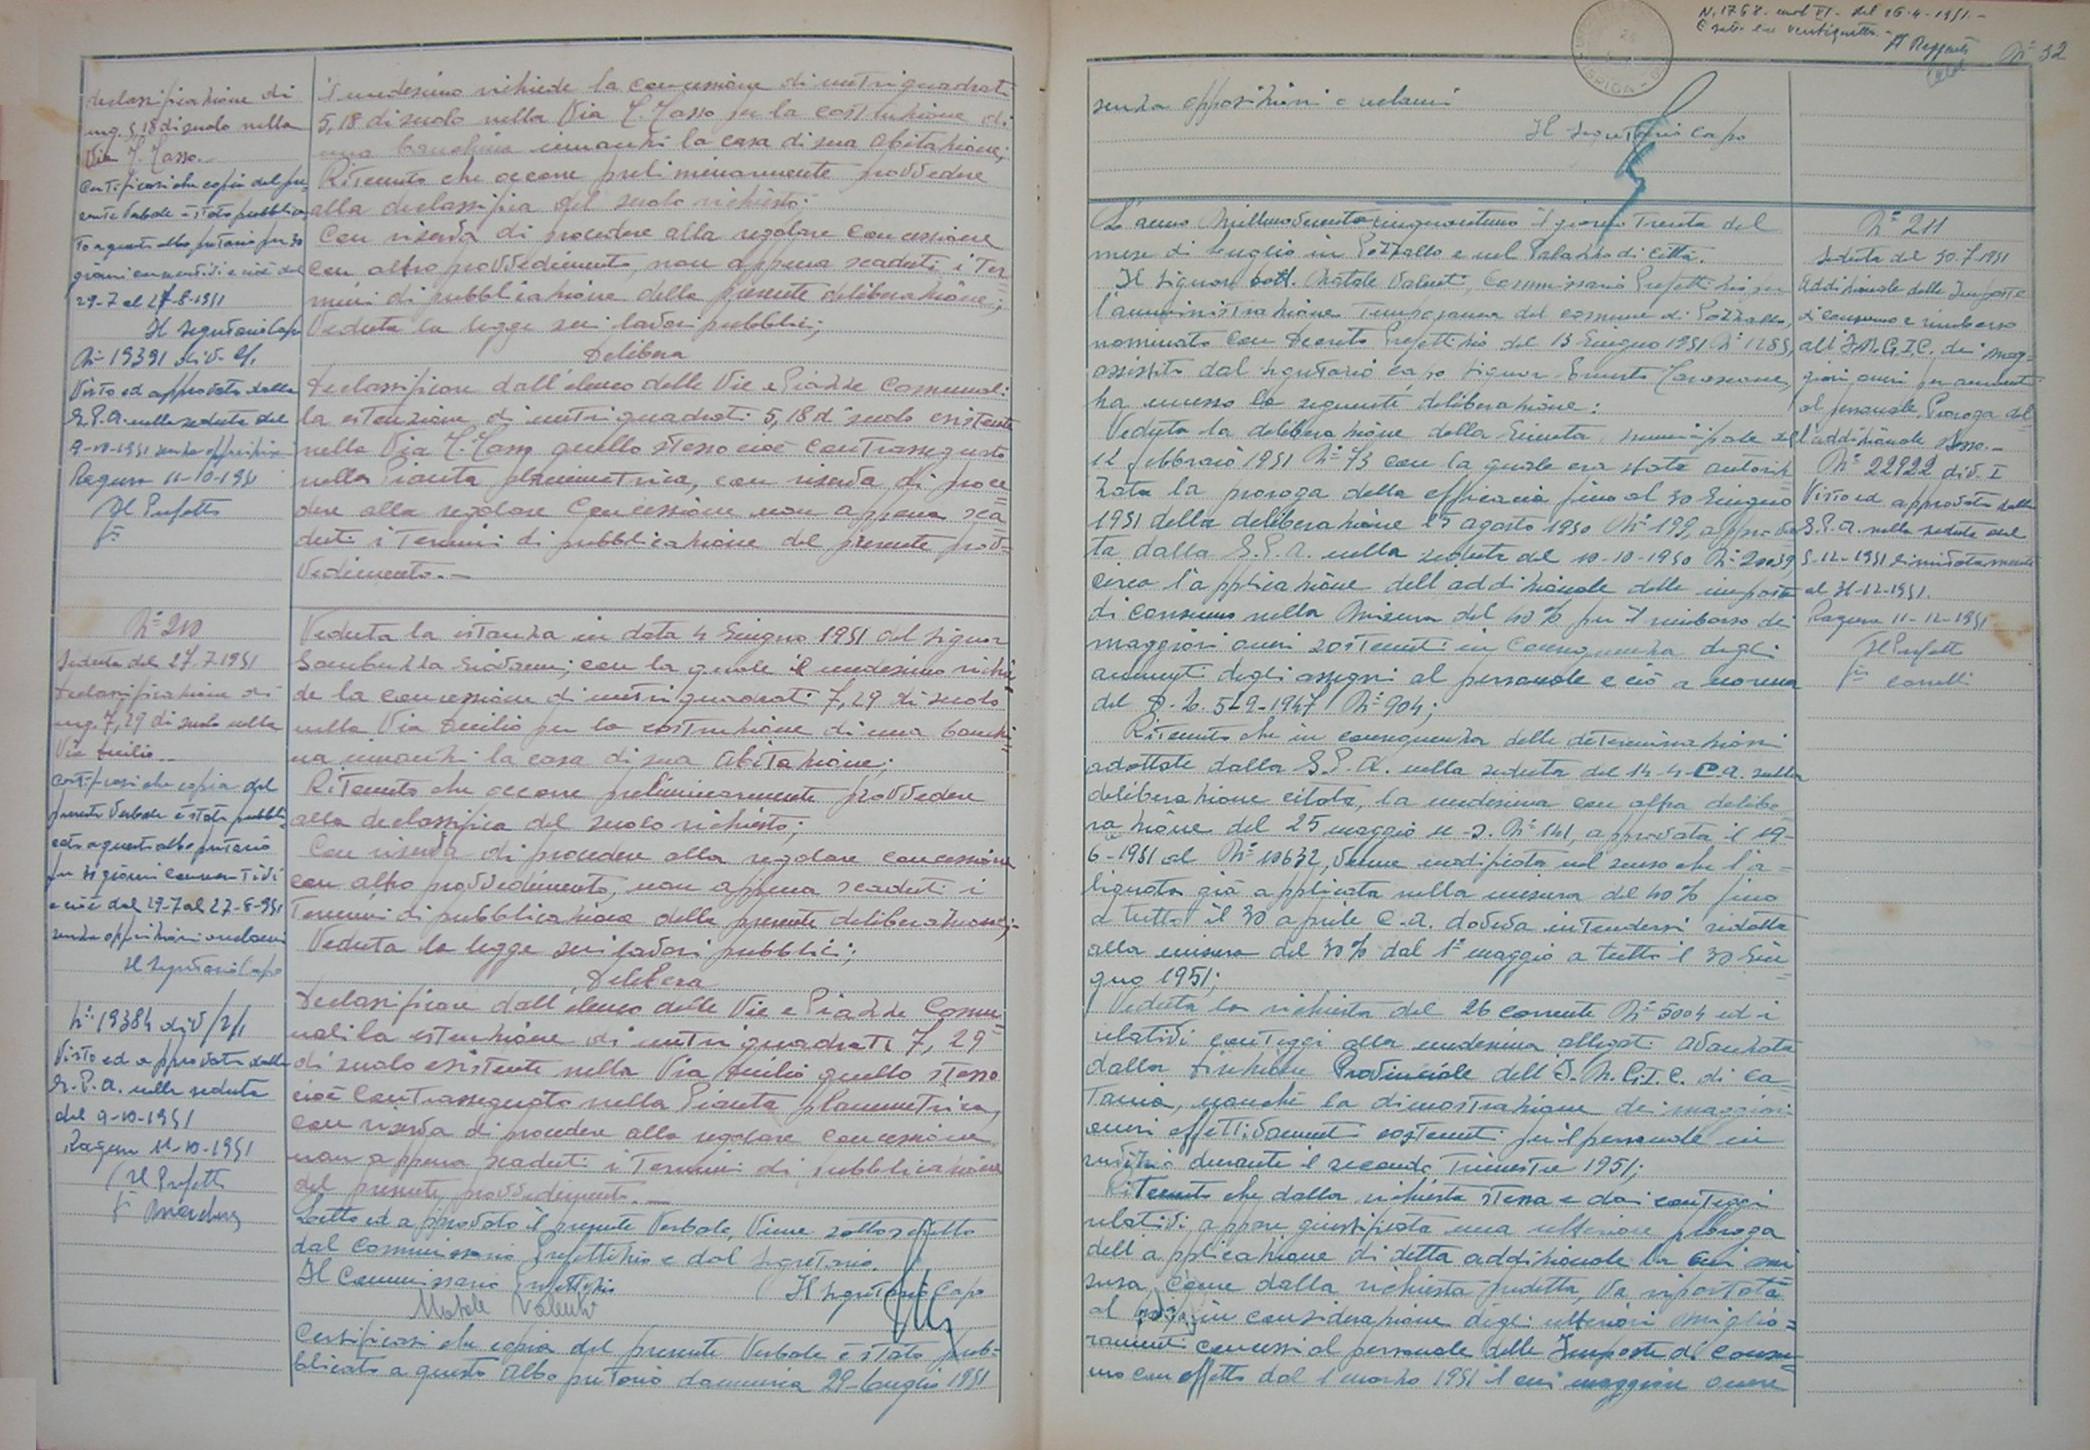 declassificazione di
mq. 5,18 di suolo nella
Via T. Tasso.-
Certificasi che copia del pre
sente Verbale è stata pubblica
ta a questo albo pretorio per 30
giorni consecutivi e cioè dal
29-7 al 27-8-1951
Il Segretario Capo
N° 19391 div. 2/1
Visto ed approvato dalla
G.P.A. nella seduta del
9-10-1951 senza opposizioni
Ragusa 11-10-1951
Il Prefetto
f°
il medesimo richiede la concessione di metri quadrati
5,18 di suolo nella Via T. Tasso per la costruzione di
una banchina innanzi la casa di sua abitazione;
Ritenuto che occorre preliminarmente provvedere
alla declassifica del suolo richiesto;
Con riserva di procedere alla regolare concessione
con altro provvedimento, non appena scaduti i ter=
mini di pubblicazione della presente deliberazione;
Veduta la legge sui lavori pubblici;
Delibera
Declassificare dall'elenco delle Vie e Piazze Comunali
la estenzione di metri quadrati 5,18 di suolo esistente
nella Via T. Tasso quello stesso cioè contrassegnato
nella Pianta planimetrica, con riserva di proce=
dere alla regolare concessione non appena sca=
duti i termini di pubblicazione del presente prov=
vedimento.-
N° 210
Seduta del 27.7.1951
Declassificazione di
mq. 7,29 di suolo nella
Via Duilio.-
Certificasi che copia del
presente Verbale è stata pubbli=
cata a questo albo pretorio
per 30 giorni consecutivi
e cioè dal 29-7 al 27-8-951
senza opposizioni o reclami
Il Segretario Capo
N° 19384 div. 2/1
Visto ed approvato dalla
G.P.A. nella seduta
del 9-10-1951
Ragusa 11-10-1951
Il Prefetto
f°
Veduta la istanza in data 4 Giugno 1951 del Signor
Giovanni; con la quale il medesimo richie=
de la concessione di metri quadrati 7,29 di suolo
nella Via Duilio per la costruzione di una banchi=
na innanzi la casa di sua abitazione;
Ritenuto che occorre preliminarmente provvedere
alla declassifica del suolo richiesto;
Con riserva di procedere alla regolare concessione
con altro provvedimento, non appena scaduti i
termini di pubblicazione della presente deliberazione;-
Veduta la legge sui lavori pubblici;
Delibera
Declassificare dall'elenco delle Vie e Piazze Comu=
nali la estenzione di metri quadrati 7,29
di suolo esistente nella Via Duilio quello stesso
cioè contrassegnato nella Pianta planimetrica,
con riserva di procedere alla regolare concessione
non appena scaduti i termini di pubblicazione
del presente provvedimento.-
Letto ed approvato il presente Verbale, viene sottoscritto
dal Commissario Prefettizio e dal Segretario.
Il Commissario Prefettizio Il Segretario Capo
Natale Valenti
Certificasi che copia del presente Verbale è stata pub=
blicata a questo Albo pretorio domenica 29-Luglio 1951
N. 1768- mod VI- del 16-4-1951.-
N° 32
senza opposizioni o reclami
Il Segretario Capo
L'anno Millenovecentocinquantuno il giorno Trenta del
mese di Luglio in Pozzallo e nel Palazzo di Città.
Il Signor Dott. Natale Valenti, Commissario Prefettizio per
l'amministrazione temporanea del comune di Pozzallo,
nominato con Decreto Prefettizio del 13 Giugno 1951 N° 1285,
assistito dal Segretario capo Signor Ernesto
ha emesso la seguente deliberazione:
Veduta la deliberazione della Giunta municipale del
12 febbraio 1951 N° 73 con la quale era stata autoriz
zata la proroga della efficacia fino al 30 Giugno
1951 della deliberazione 25 agosto 1950 N° 199, approva
ta dalla G.P.A. nella seduta del 10-10-1950 N° 20039,
circa l'applicazione dell'addizionale delle imposte
di consumo nella misura del 40% per il rimborso dei
maggiori oneri sostenuti in conseguenza degli
aumenti degli assegni al personale e ciò a norma
del D.L. 5-9-1947 N° 904;
Ritenuto che in conseguenza delle determinazioni
adottate dalla G.P.A. nella seduta del 14-4-c.a. sulla
deliberazione citata, la medesima con altra delibe
razione del 25 maggio u.s. N° 141, approvata il 19-
6-1951 al N° 10632, venne modificata nel senso che l'a=
liquota già applicata nella misura del 40% fino
a tutto il 30 aprile c.a. doveva intendersi ridotta
alla misura del 30% dal 1° maggio a tutto il 30 Giu=
gno 1951;
Veduta la richiesta del 26 corrente N° 5004 ed i
relativi conteggi alla medesima allegati avanzata
dalla Direzione Provinciale dell'I.N.G.I.C. di Ca=
tania, nonchè la dimostrazione dei maggiori
oneri effettivamente sostenuti per il personale in
servizio durante il secondo Trimestre 1951;
Ritenuto che dalla richiesta stessa e dai conteggi
relativi appare giustificata una ulteriore proroga
dell'applicazione di detta addizionale la cui mi
sura, come dalla richiesta predetta, va riportata
al in considerazione degli ulteriori miglio=
ramenti concessi al personale delle Imposte di Consu=
mo con effetto dal 1 marzo 1951 il cui maggiore onere
N° 211
Seduta del 30.7.1951
Addizionale delle Imposte
di consumo e rimborso
all'I.N.G.I.C. dei mag=
giori oneri per aumenti
al personale. Proroga del=
l'addizionale stessa.-
N° 22922 div. I
Visto ed approvato dalla
G.P.A. nella seduta del
5-12-1951 limitatamente
al 31-12-1951.
Ragusa 11-12-1951
Il Prefetto
f°